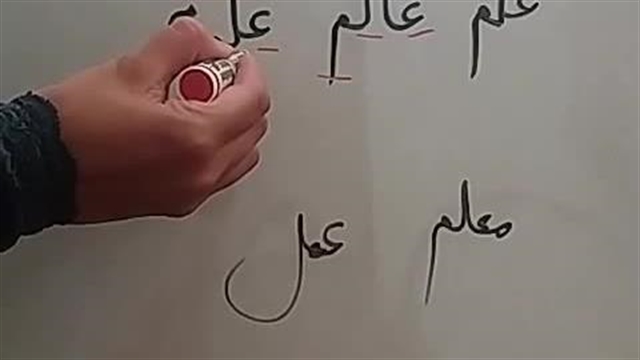 علم عالم
معلم عمل